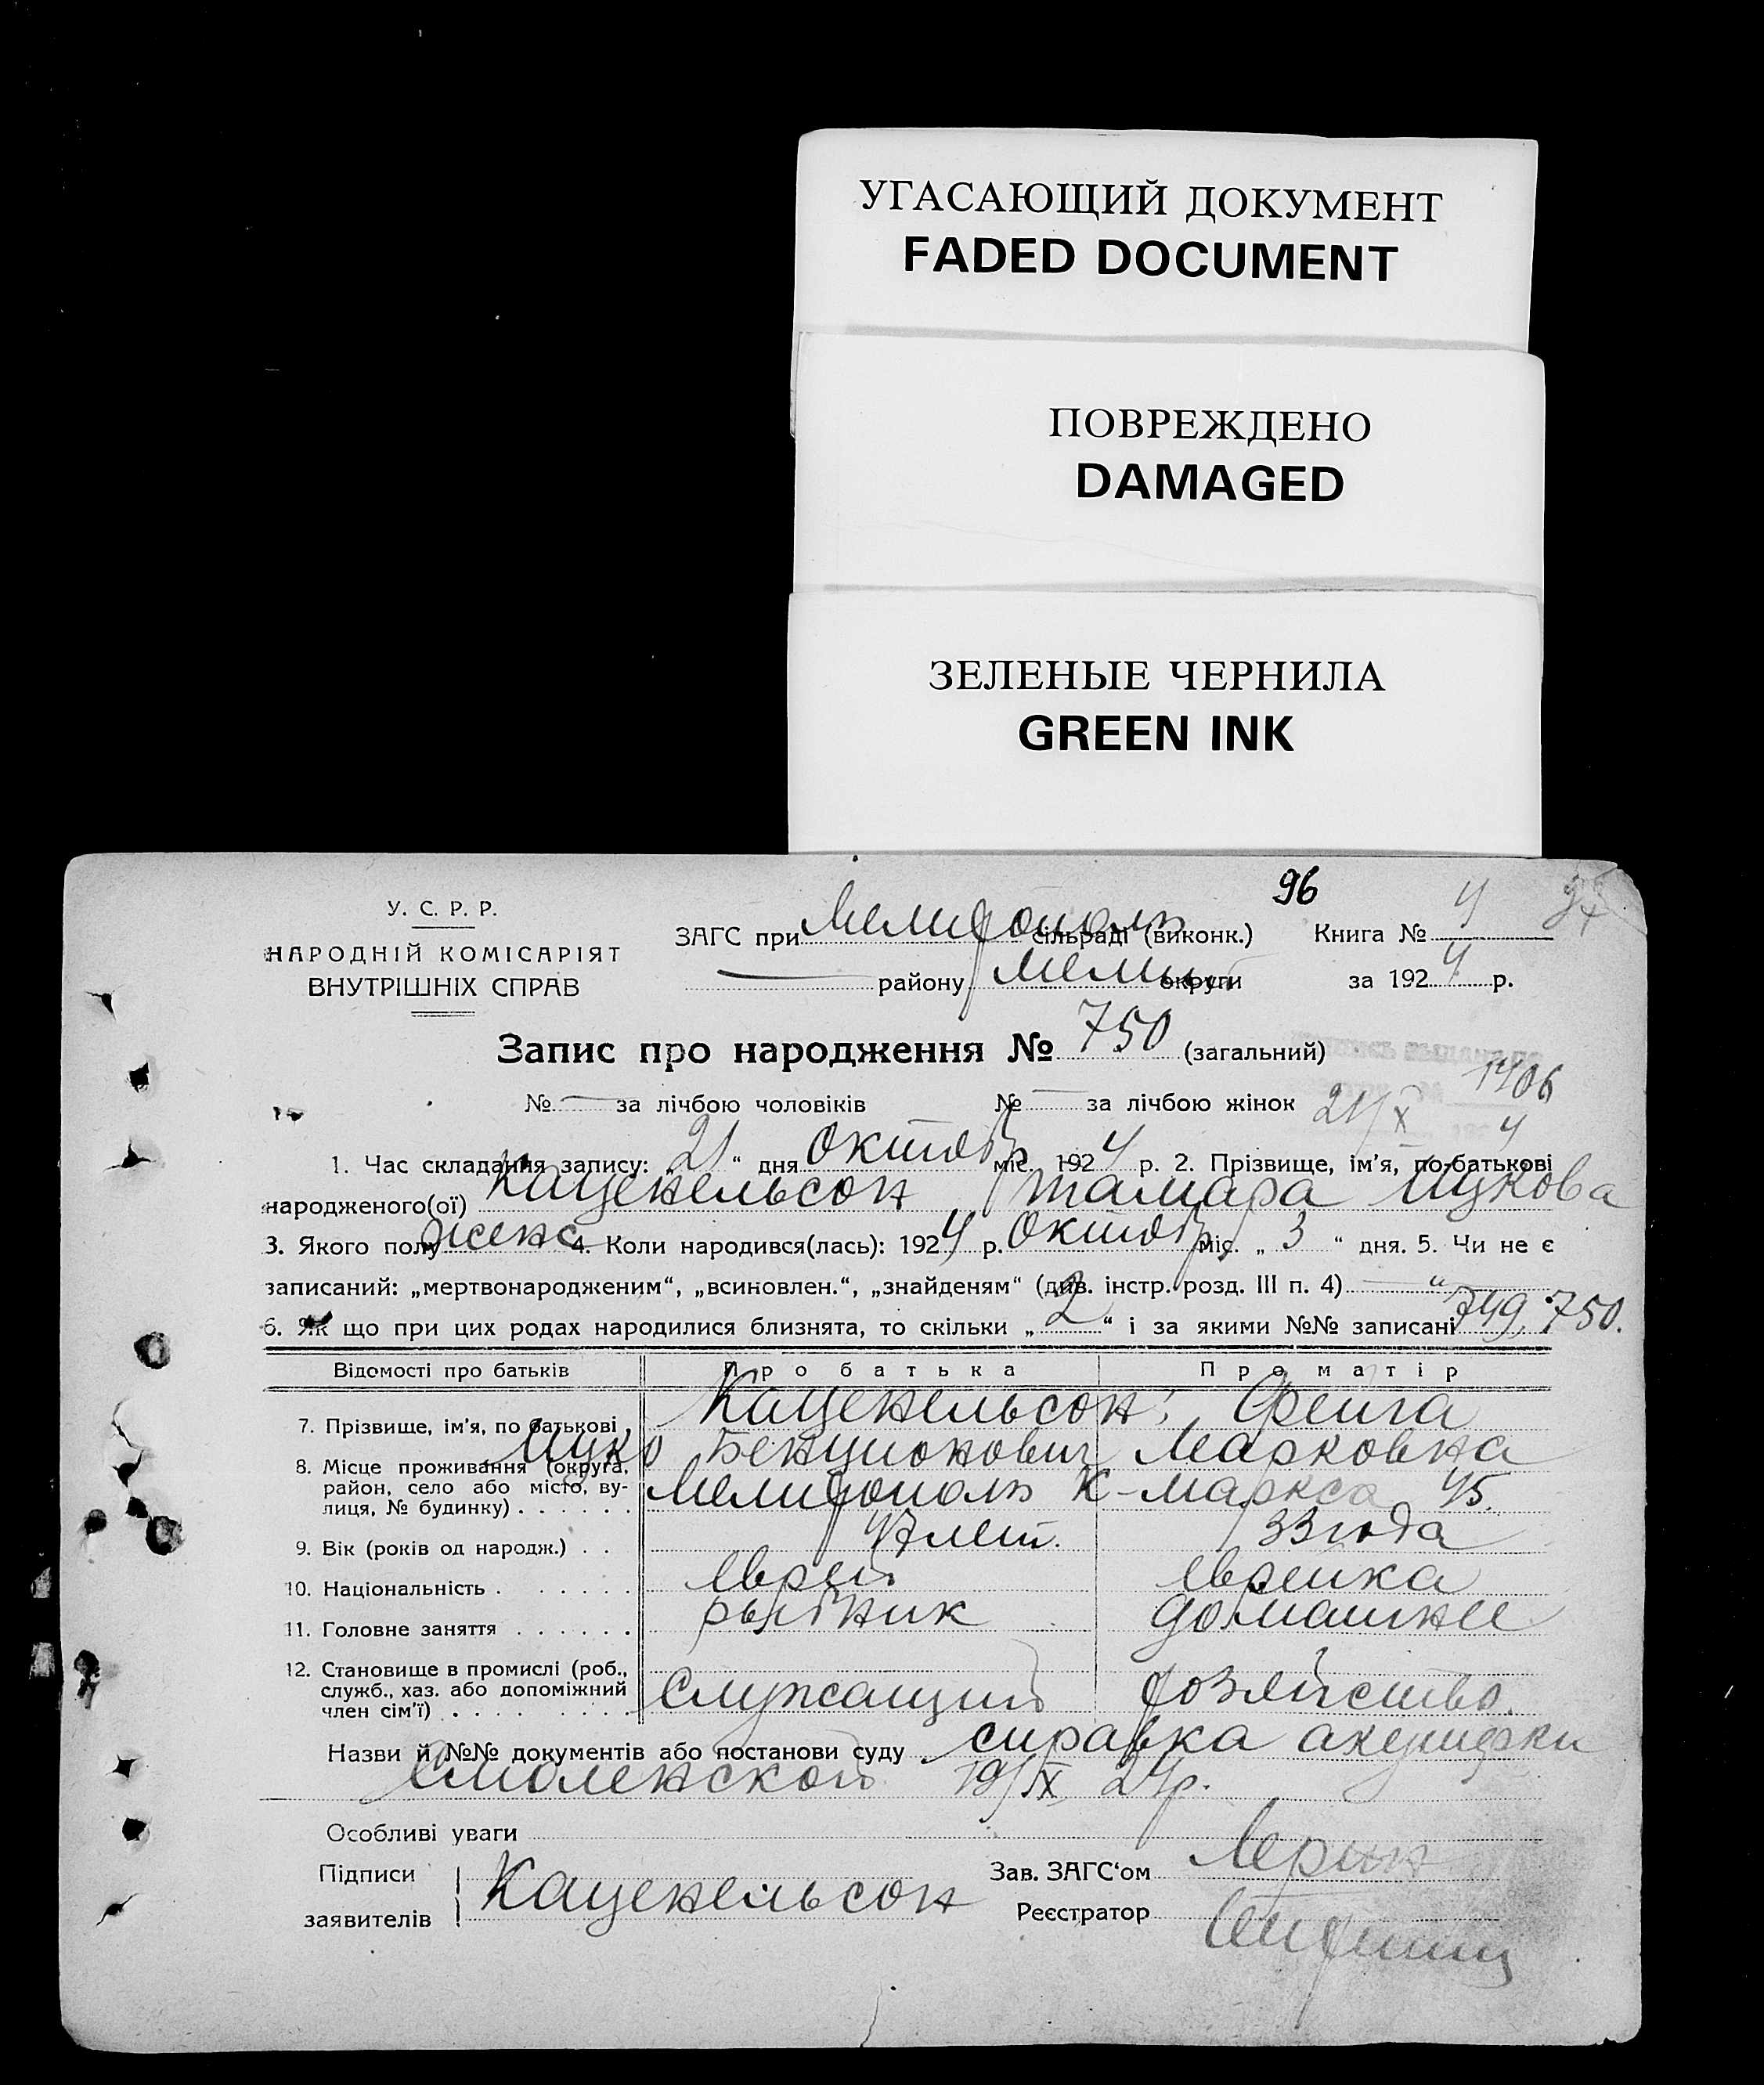 УГАСАЮЩИЙ ДОКУМЕНТ
FADED DOCUMENT
ПОВРЕЖДЕНО
DAMAGED
ЗЕЛЕНЫЕ ЧЕРНИЛА
GREEN INK
96
У. С. Р. Р.
НАРОДНІЙ КОМІСАРІЯТ
ВНУТРІШНІХ СПРАВ
ЗАГС при Мелитополь сільраді (виконк.) Книга № 4
району Мелит округи за 1924 р.
Запис про народження № 750 (загальний)
1406
№ — за лічбою чоловіків № — за лічбою жінок 21/X 4
1. Час складання запису: „21“ дня октябр міс. 1924 р. 2. Прізвище, ім'я, по-батькові
народженого(ої) Каценельсон Тамара Ицкова
3. Якого полу женс 4. Коли народився(лась): 1924 р. октябр міс. „3“ дня. 5. Чи не є
записаний: „мертвонародженим“, „всиновлен.“, „знайденям“ (див. інстр. розд. III п. 4) — „ —
6. Як що при цих родах народилися близнята, то скільки „2“ і за якими №№ записані 749, 750.
Відомості про батьків Про батька Про матір
7. Прізвище, ім'я, по батькові Каценельсон Фейга
Ицко Бенционович Марковна
8. Місце проживання (округа, район, село або місто, ву-
лиця, № будинку) Мелитополь К-Маркса 45.
9. Вік (років од народж.) 47 лет. 33 года
10. Національність еврей еврейка
11. Головне заняття домашнее
12. Становище в промислі (роб.,
служб., хаз. або допоміжний
член сім'ї) Служащий хозяйство.
Назви й №№ документів або постанови суду справка акушерки
Смоленской 19/X 24 р.
Особливі уваги
Підписи
заявителів Каценельсон
Зав. ЗАГС'ом
Реєстратор